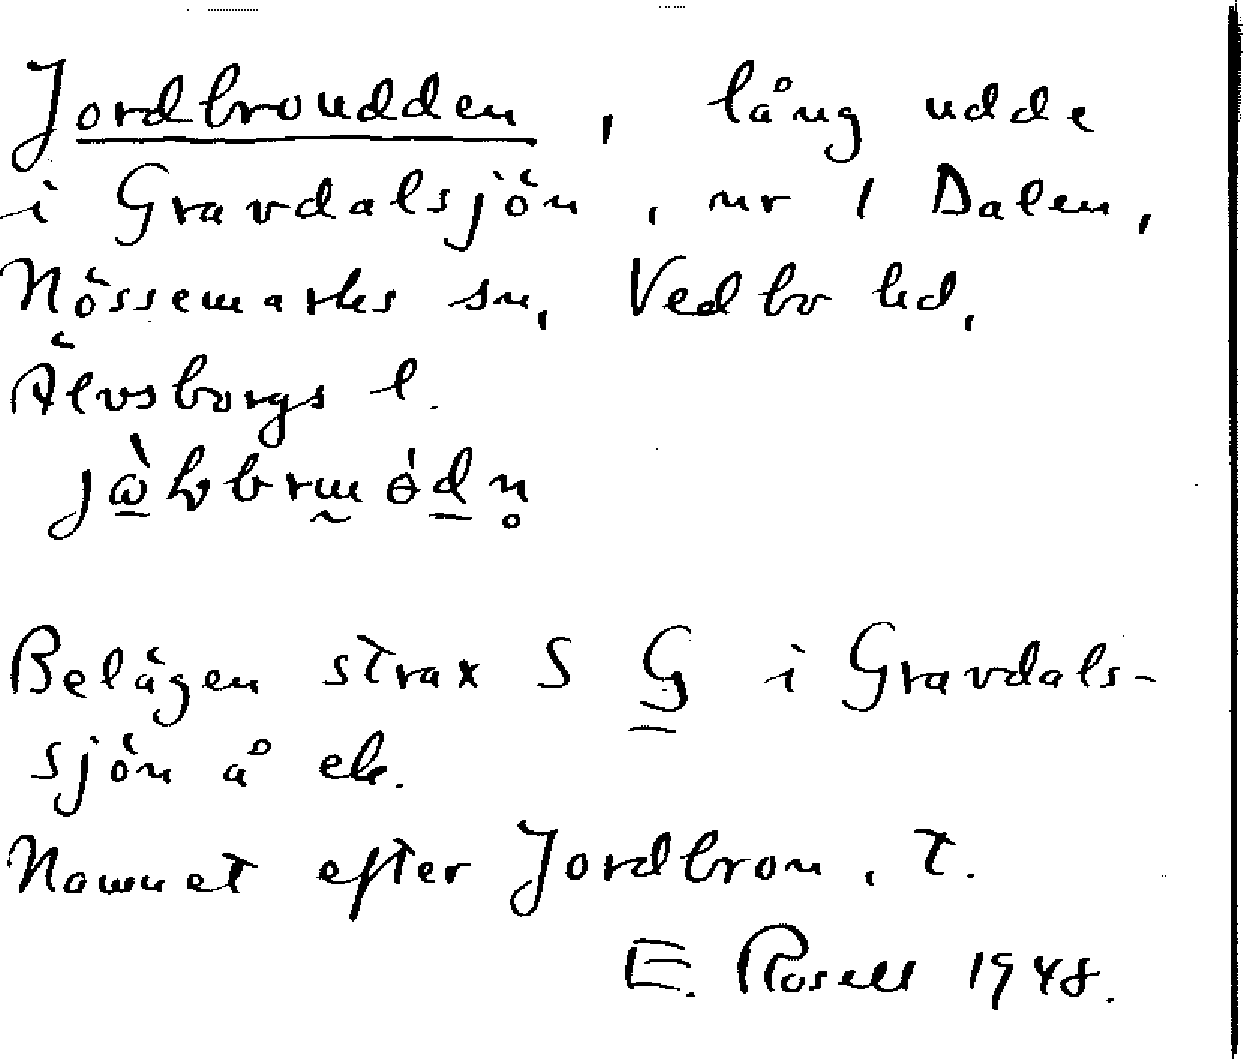 Jordbroudden, lång udde
i Gravdalsjön, nr 1 Dalen,
Nössemarks sn, Vedbo hd,
Älvsborgs l.
Belägen strax S G i Gravdals-
sjön å ek.
Namnet efter Jordbron, t.
E. Rosell 1948.